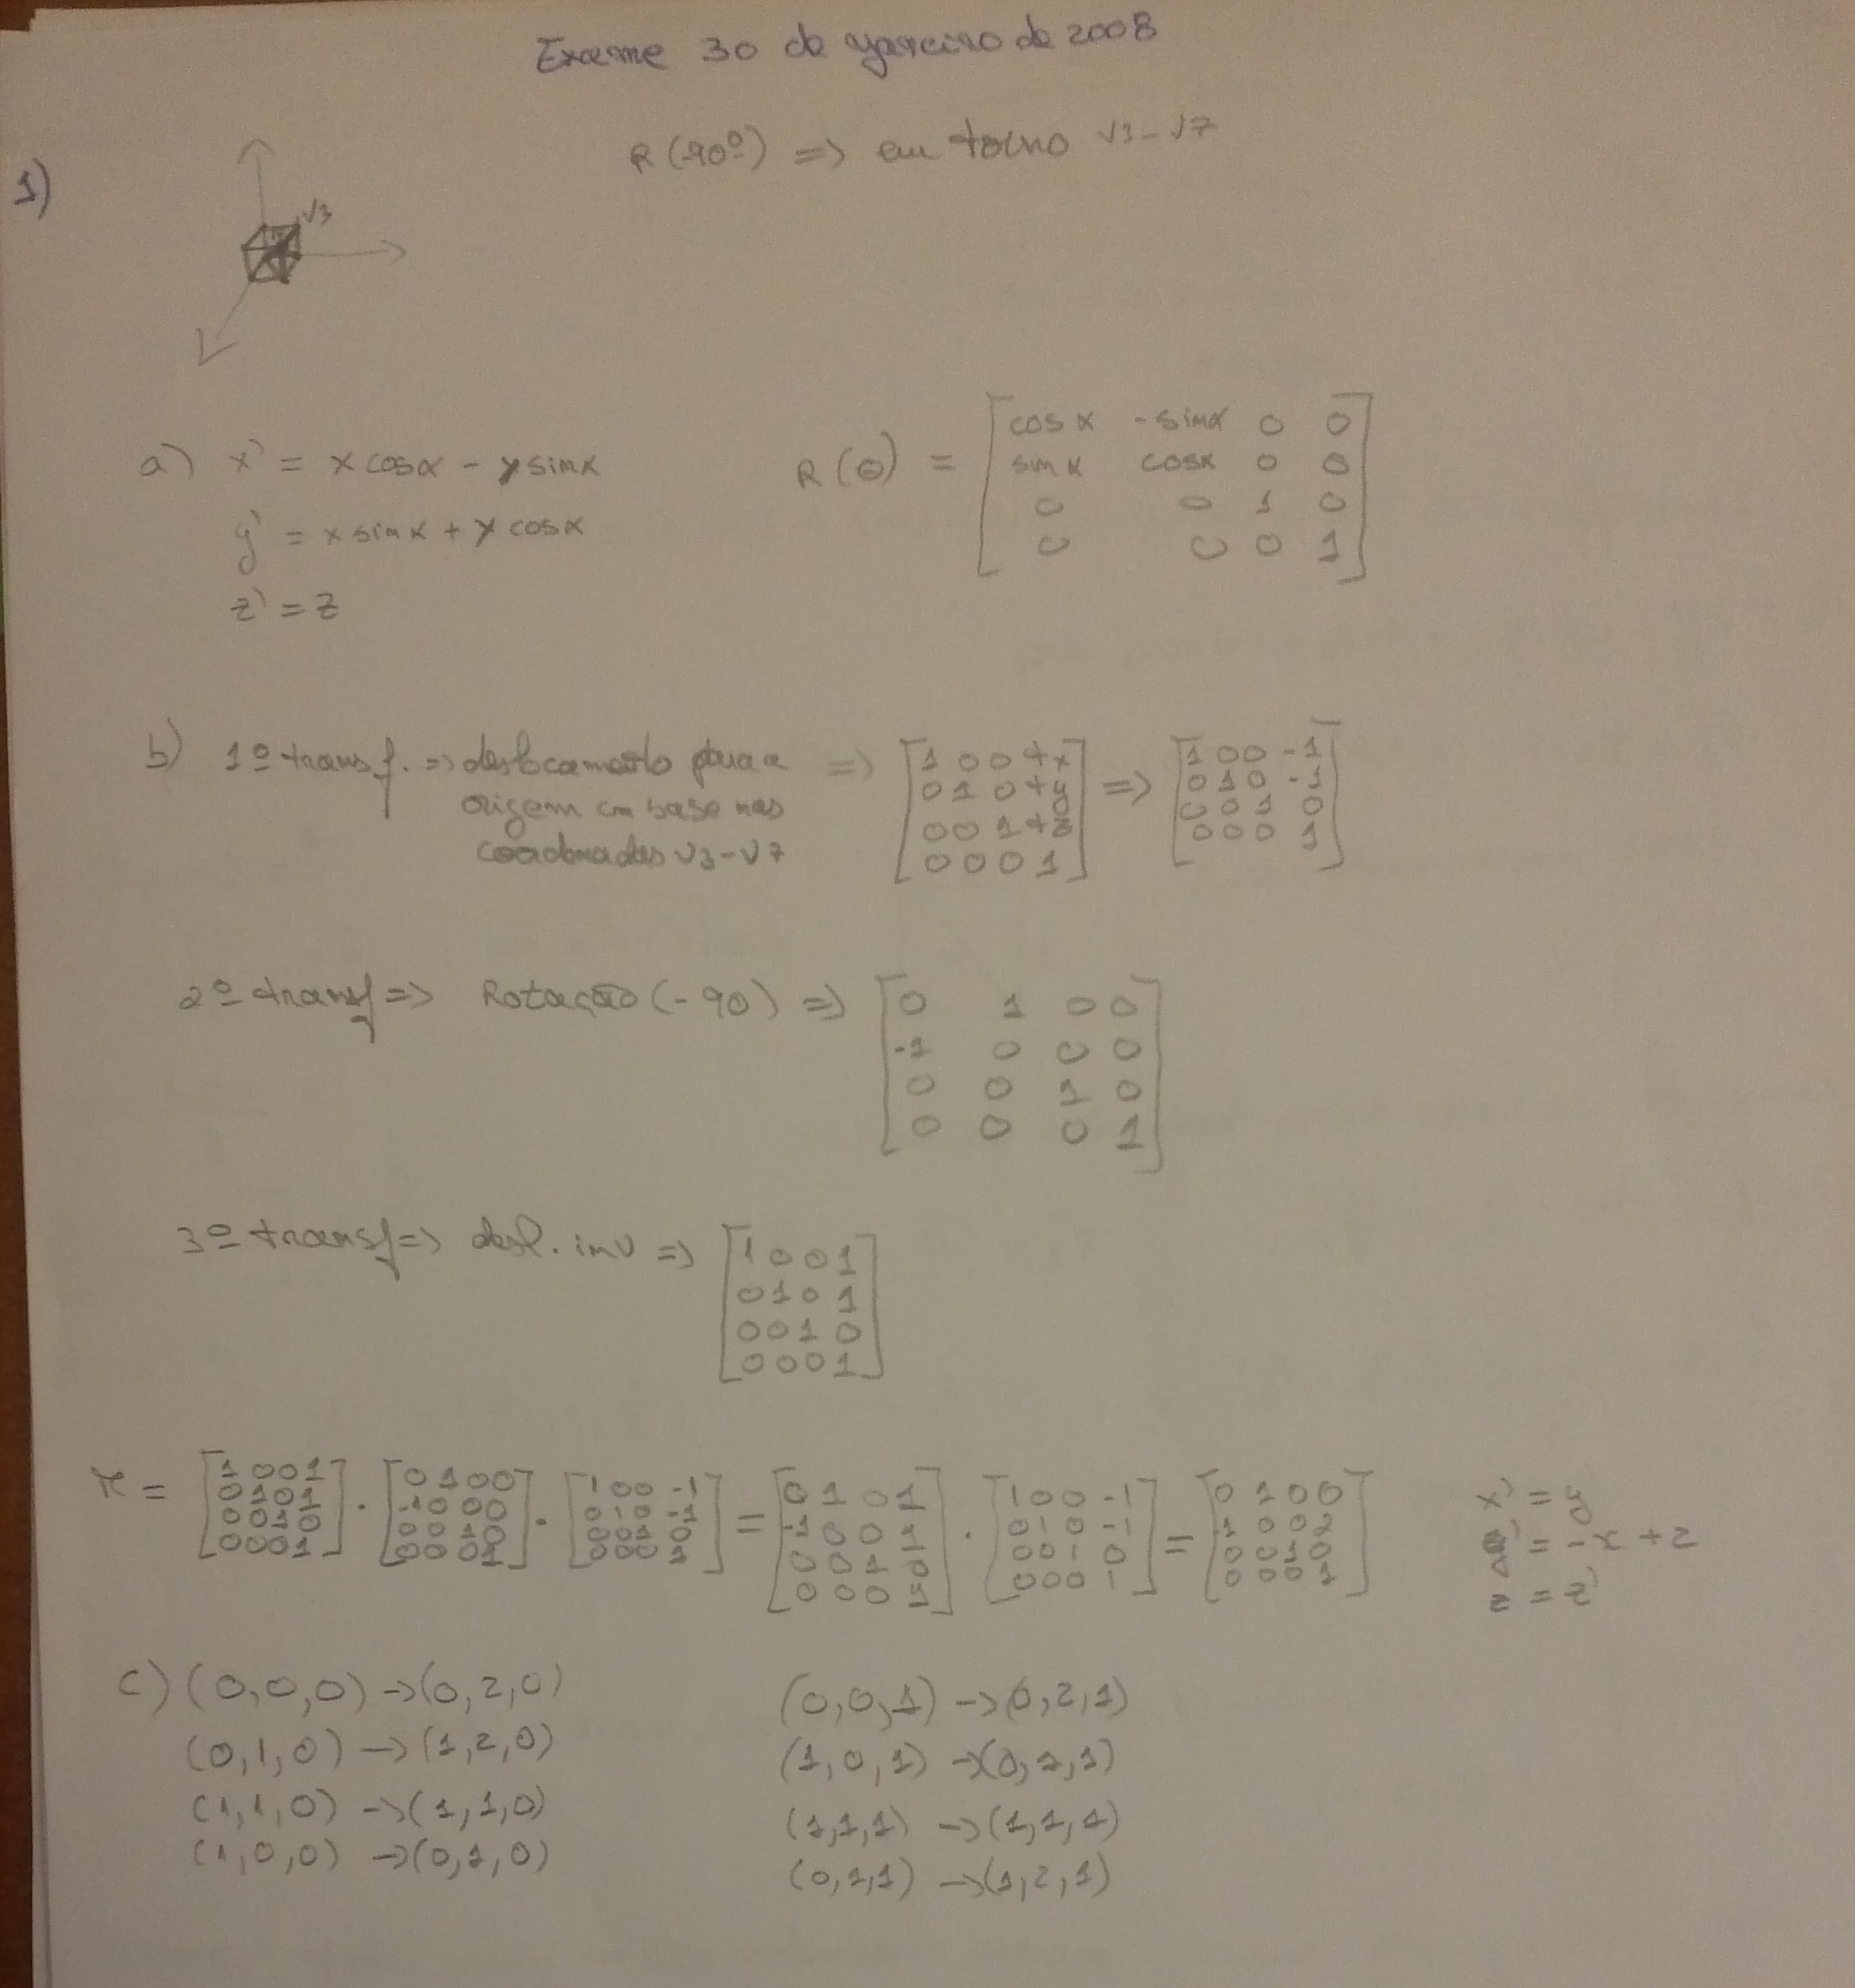 Exame 30 de janeiro de 2008
R(-90º) => em torno V3-V7
1)
V3
a) x' = x cosα - y sinα
y' = x sinα + y cosα
z' = z
R(θ) = [cosα -sinα 0 0
sinα cosα 0 0
0 0 1 0
0 0 0 1]
b) 1º transf. => deslocamento para a
origem com base nas
coordenadas V3-V7
=> [1 0 0 tx
0 1 0 ty
0 0 1 tz
0 0 0 1]
=> [1 0 0 -1
0 1 0 -1
0 0 1 0
0 0 0 1]
2º transf => Rotação (-90) => [0 1 0 0
-1 0 0 0
0 0 1 0
0 0 0 1]
3º transf => desl. inv => [1 0 0 1
0 1 0 1
0 0 1 0
0 0 0 1]
= [1 0 0 1
0 1 0 1
0 0 1 0
0 0 0 1]
. [0 1 0 0
-1 0 0 0
0 0 1 0
0 0 0 1]
. [1 0 0 -1
0 1 0 -1
0 0 1 0
0 0 0 1]
= [0 1 0 1
-1 0 0 1
0 0 1 0
0 0 0 1]
. [1 0 0 -1
0 1 0 -1
0 0 1 0
0 0 0 1]
= [0 1 0 0
-1 0 0 2
0 0 1 0
0 0 0 1]
x' = y
= -x + 2
z = z'
c) (0,0,0) -> (0,2,0)
(0,1,0) -> (1,2,0)
(1,1,0) -> (1,1,0)
(1,0,0) -> (0,1,0)
(0,0,1) -> (0,2,1)
(1,0,1) -> (0,1,1)
(1,1,1) -> (1,1,1)
(0,1,1) -> (1,2,1)